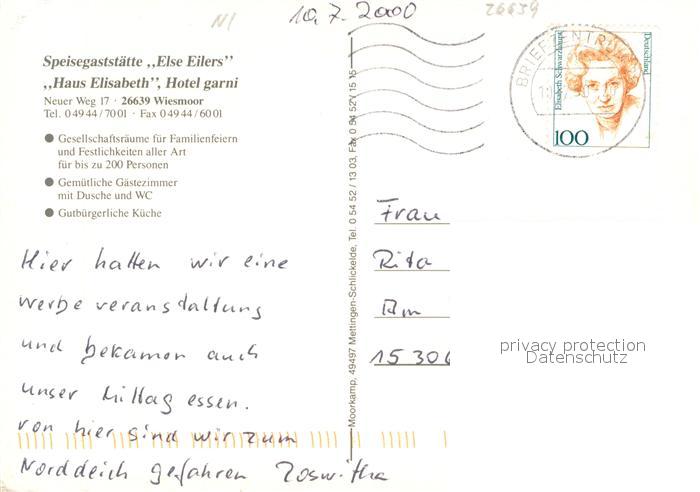 NI
10.7.2000
26639
Speisegaststätte „Else Eilers”
„Haus Elisabeth”, Hotel garni
Neuer Weg 17 · 26639 Wiesmoor
Tel. 04944/7001 · Fax 04944/6001
● Gesellschaftsräume für Familienfeiern
und Festlichkeiten aller Art
für bis zu 200 Personen
● Gemütliche Gästezimmer
mit Dusche und WC
● Gutbürgerliche Küche
Hier hatten wir eine
Werbeveranstaltung
und bekamen auch
unser Mittag essen.
von hier sind wir zum
Norddeich gefahren Roswitha
Moorkamp, 49497 Mettingen-Schlickelde, Tel. 0 54 52 / 13 03, Fax 0 54 52 / 15 15
BRIEFZENTRUM
Elisabeth Schwarzhaupt
Deutschland
100
Frau
Rita
Am
15306
privacy protection
Datenschutz